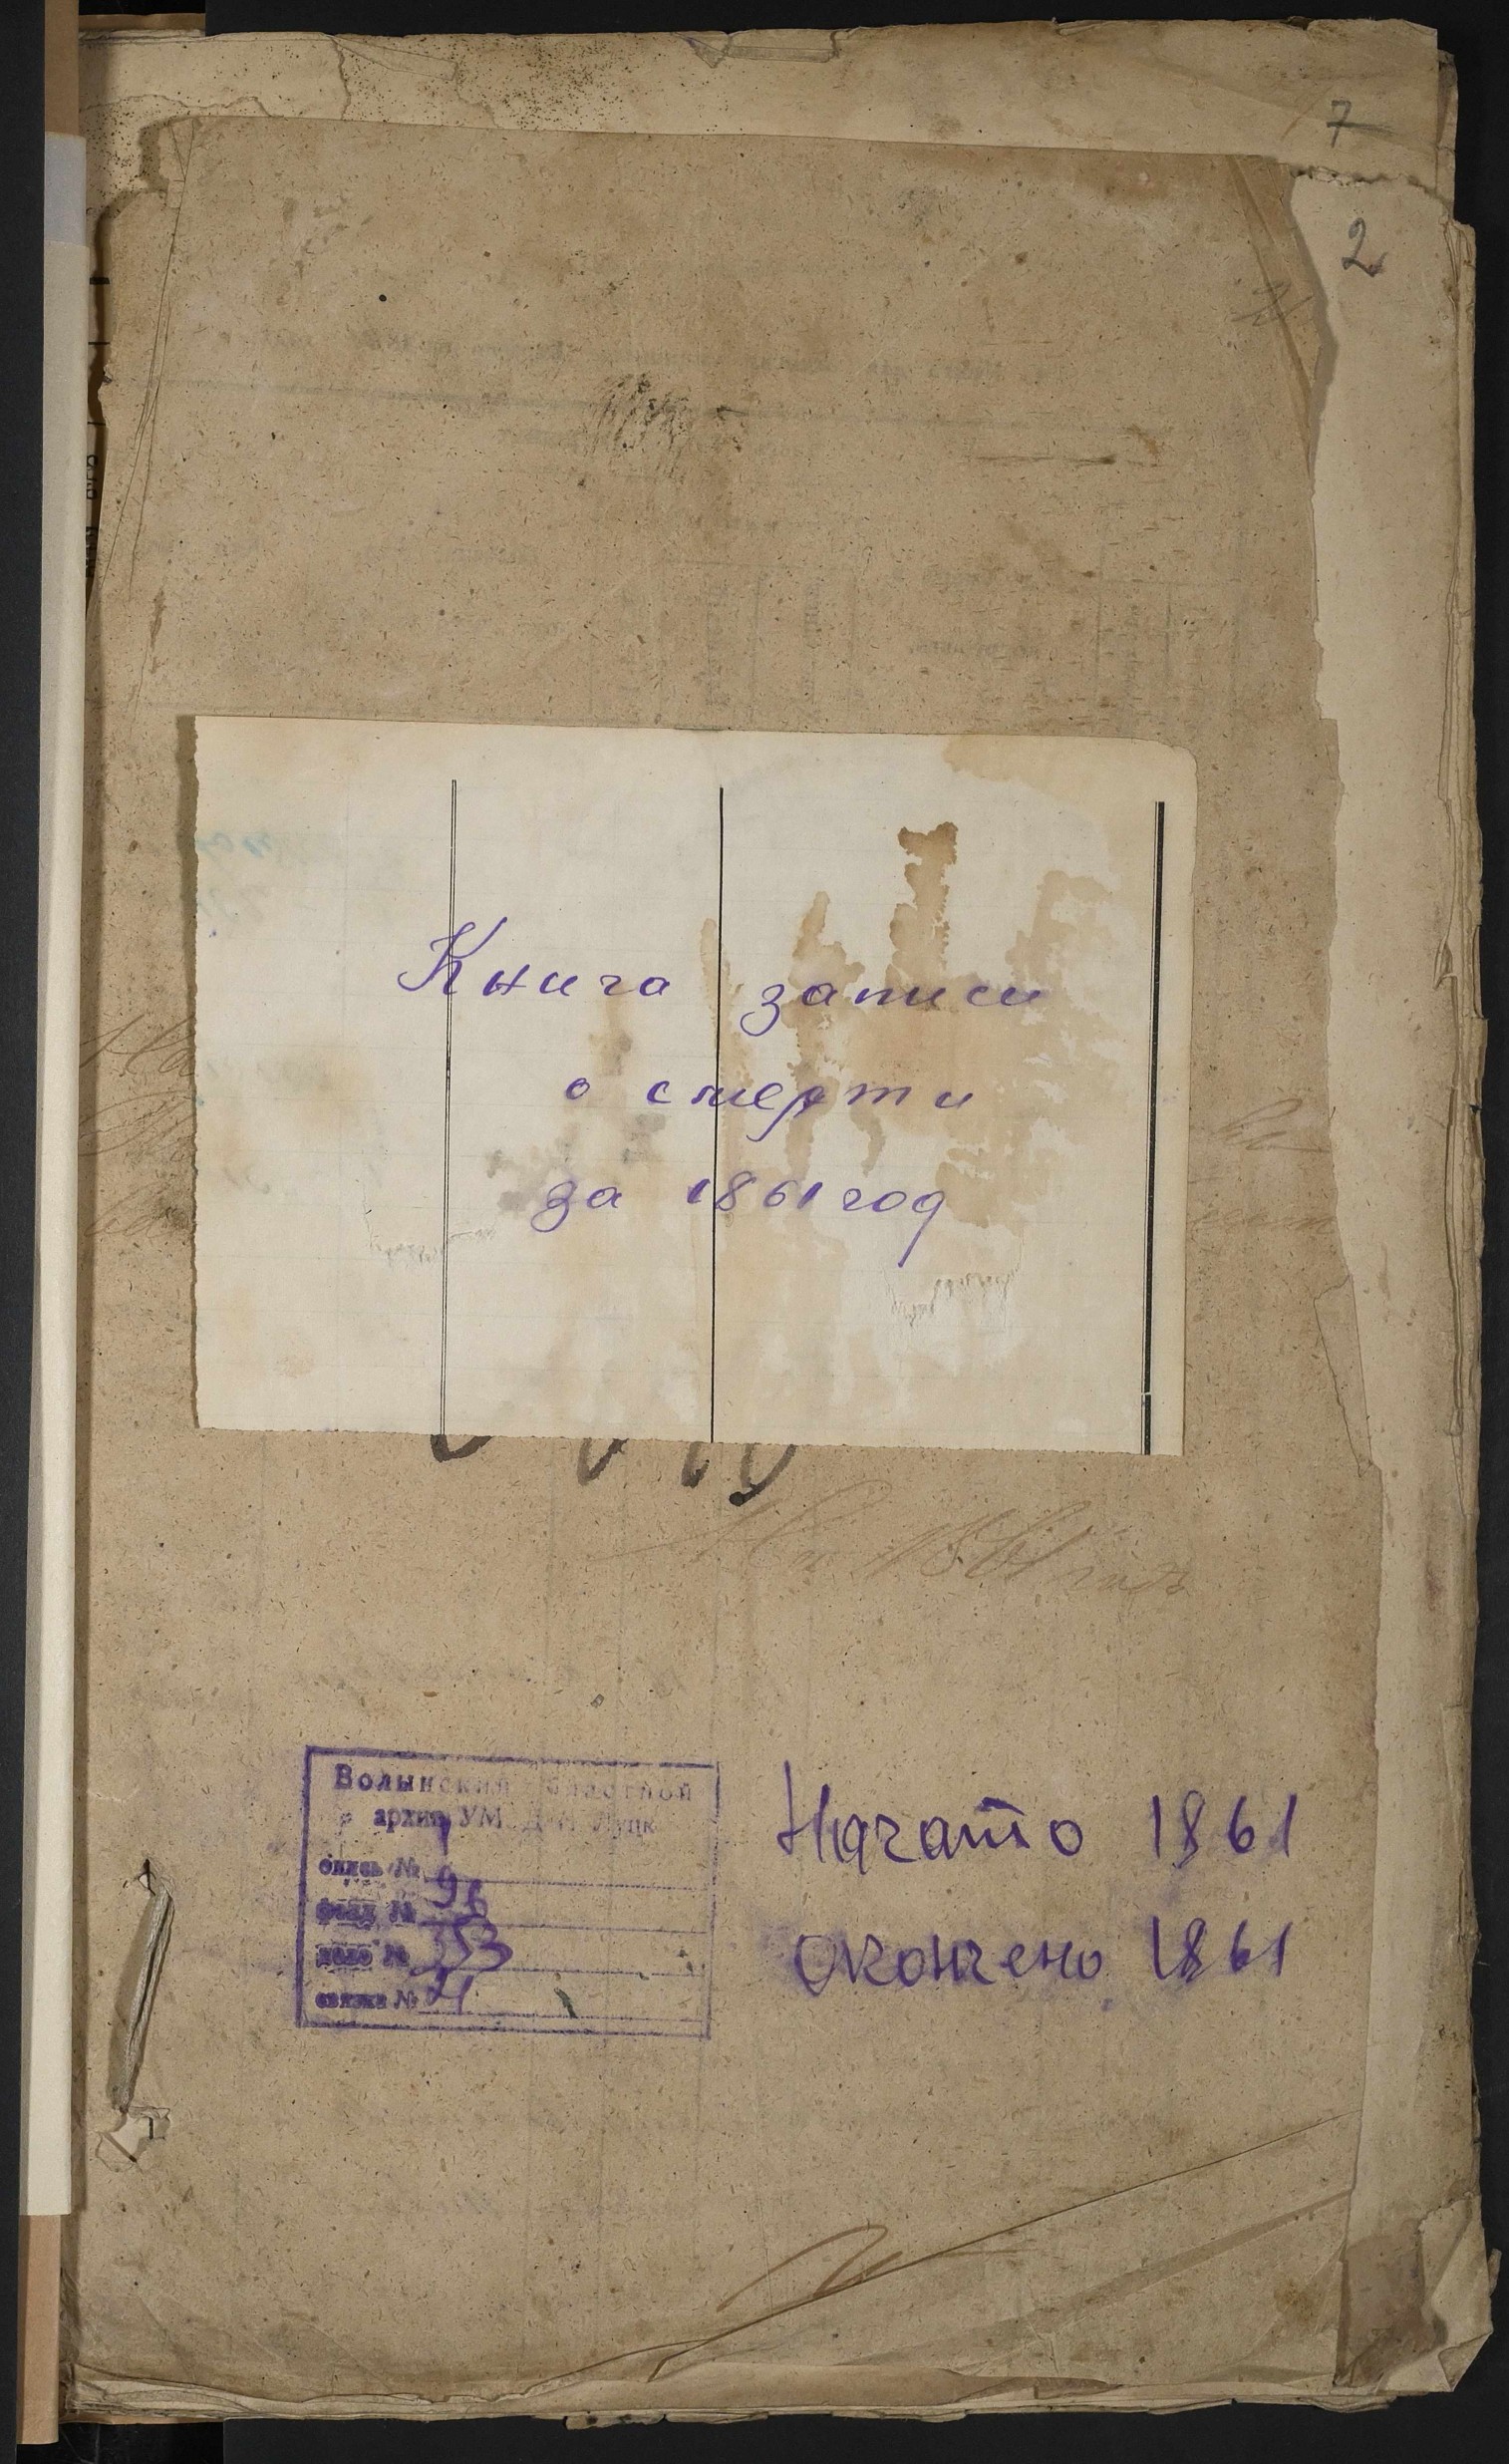 7
2
Книга записи
о смерти
за 1861 год
На 1861 годъ
Волынский областной
архив УМ
опись № 1
фонд № 96
дело № 353
связка № 21
Начато 1861
окончено 1861